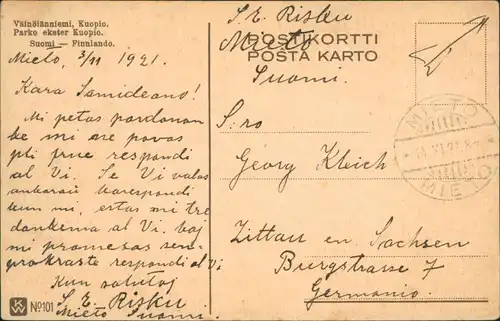 Väinölänniemi, Kuopio.
Parko ekster Kuopio.
Suomi — Finnlando.
Mieto, 3/11 1921.
Kara Samideano!
Mi petas pardonon
ke mi ne povas
pli frue respondi
al Vi. Se Vi volas
ankoraŭ korespondi
kun mi, estas mi tre
dankema al Vi, kaj
mi promesas sen-
prokraste respondi al Vi
Kun salutoj
S. E. Risku
Mieto Suomi.
KW
No101
S. E. Risku
POSTIKORTTI
Mieto
POSTA KARTO
Suomi.
S:ro
Georg Kleich
Zittau en Sachsen
Burgstrasse 7
Germanio.
MIETO
XI.21
MIETO